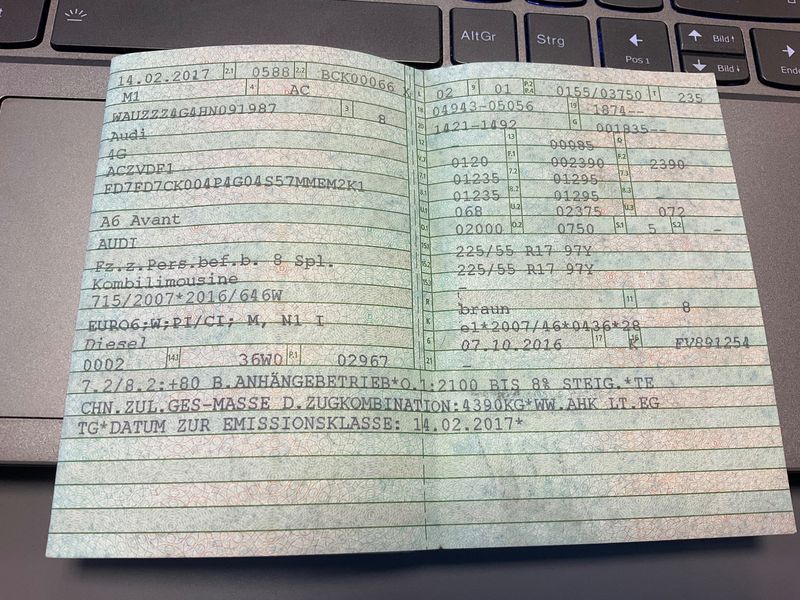 AltGr
Strg
Pos 1
Bild
Bild
Ende
14.02.2017 2.1 0588 2.2 BCK00066
M1 4 AC
WAUZZZ4G4HN091987 3 8
Audi
4G
ACZVDF1
FD7FD7CK004P4G04S57MMEM2K1
A6 Avant
AUDI
Fz.z.Pers.bef.b. 8 Spl.
Kombilimousine
715/2007*2016/646W
EURO6;W;PI/CI; M, N1 I
Diesel
0002 14.1 36W0 P.1 02967
02 9 01 P.2 P.4 0155/03750 T 235
18 04943-05056 19 1874--
20 1421-1492 G 001835--
12 13 00085 Q
V.7 0120 F.1 002390 F.2 2390
7.1 01235 7.2 01295 7.3
8.1 01235 8.2 01295 8.3
U.1 068 U.2 02375 U.3 072
O.1 02000 O.2 0750 S.1 5 S.2 -
15.1 225/55 R17 97Y
15.2 225/55 R17 97Y
15.3
R braun 11 8
K e1*2007/46*0436*28
6 07.10.2016 17 K 16 FV891254
21 -
7.2/8.2:+80 B.ANHÄNGEBETRIEB*O.1:2100 BIS 8% STEIG.*TE
CHN.ZUL.GES-MASSE D.ZUGKOMBINATION:4390KG*WW.AHK LT.EG
TG*DATUM ZUR EMISSIONSKLASSE: 14.02.2017*